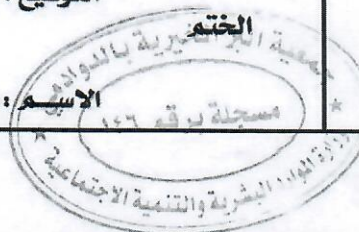 التوقيع :
الختم
جمعية البر الخيرية بالدوادمي
الاسم :
مسجلة برقم ١٤٦
وزارة الموارد البشرية والتنمية الاجتماعية